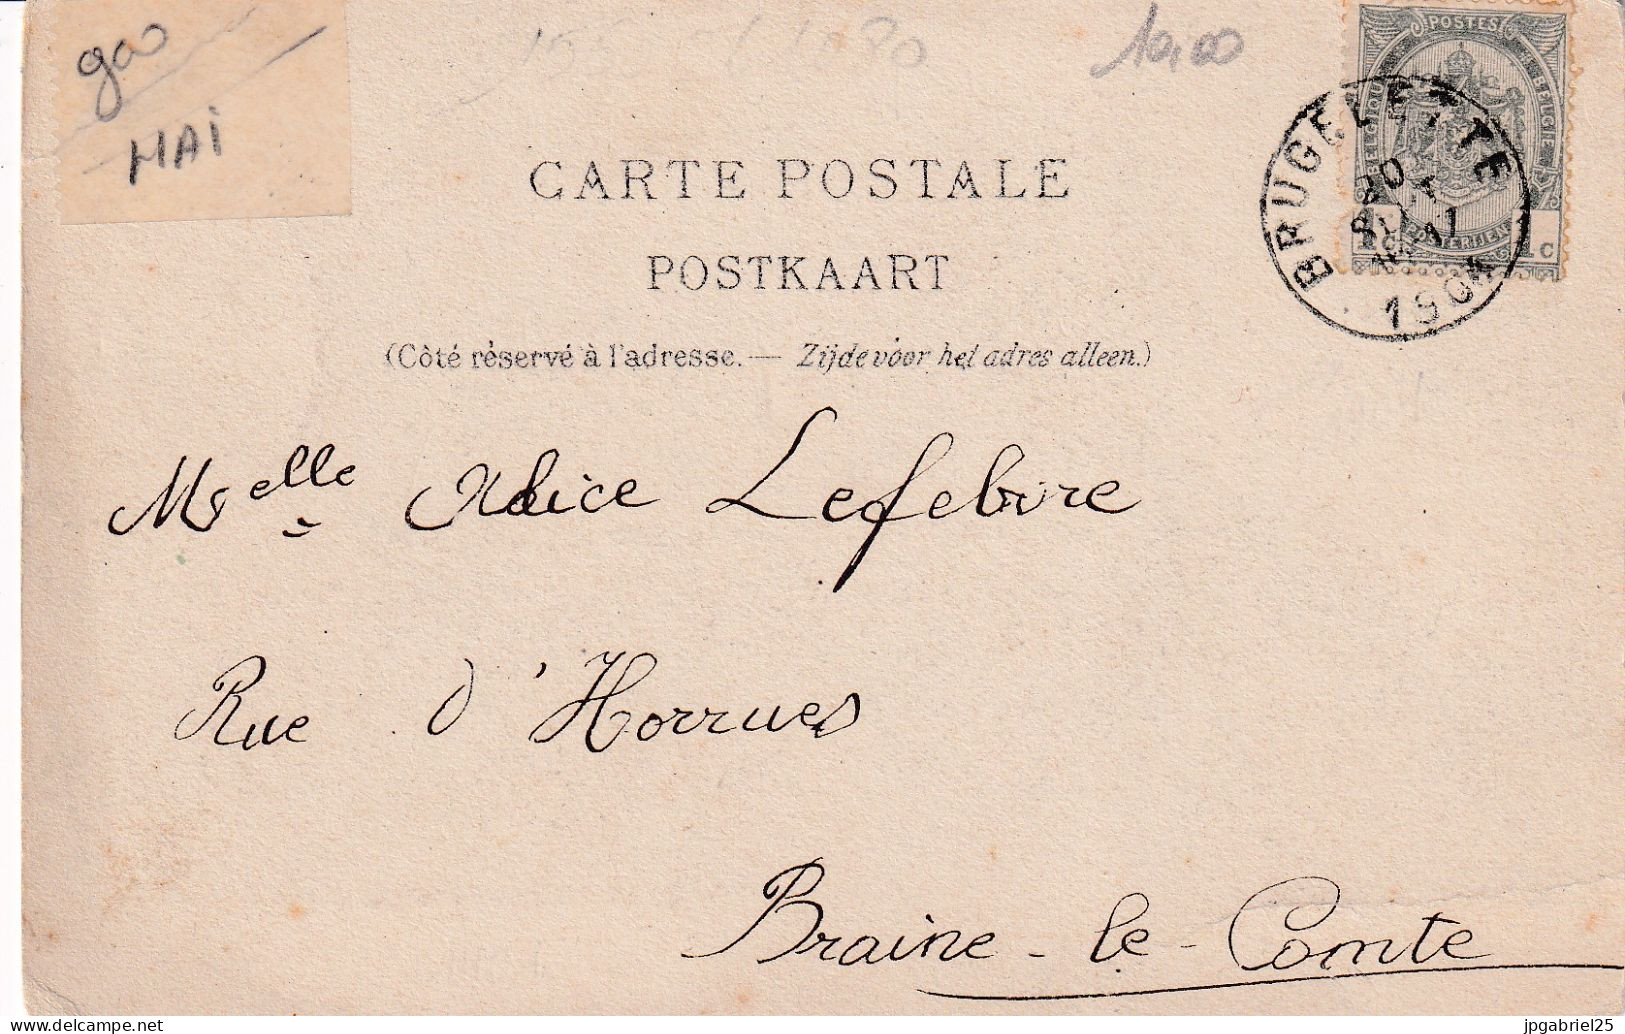 gao
HAI
10,00
POSTES
BELGIQUE
BELGIE
POSTERIJEN
1c 1c
BRUGELETTE
1904
CARTE POSTALE
POSTKAART
(Côté réservé à l'adresse. — Zijde vóór het adres alleen.)
Melle Alice Lefebvre
Rue d'Horrues
Braine-le-Comte
www.delcampe.net
jpgabriel25